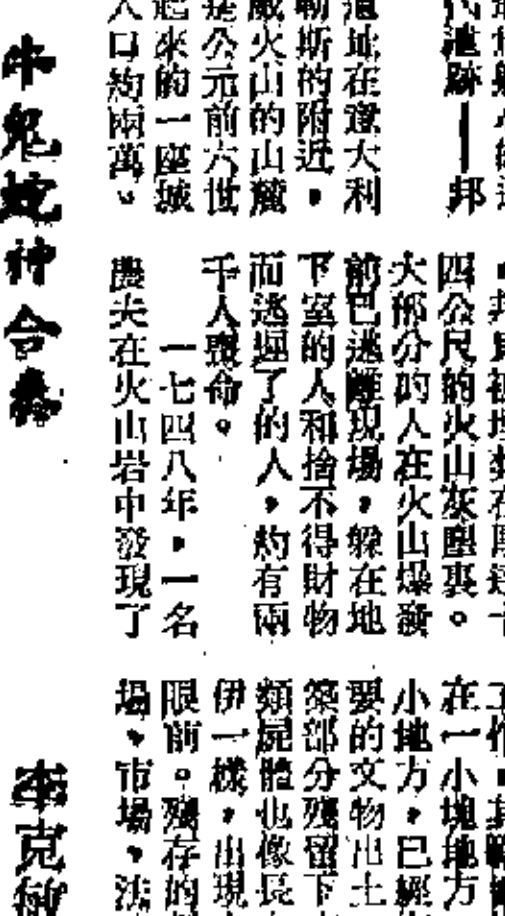 代遺跡——邦
遺址在意大利
勒斯的附近,
威火山的山麓
是公元前六世
起來的一座城
人口約兩萬。
四公尺的火山灰塵裏。
大部分的人在火山爆發
前已逃離現場,躲在地
下室的人和捨不得財物
而逃遲了的人,約有兩
千人喪命。
一七四八年,一名
農夫在火山岩中發現了
在一小塊地方
小地方,已經
要的文物出土
築部分殘留下
類屍體也像
伊一樣,出現
眼前。殘存的
場,市場,法
牛鬼蛇神合
李克